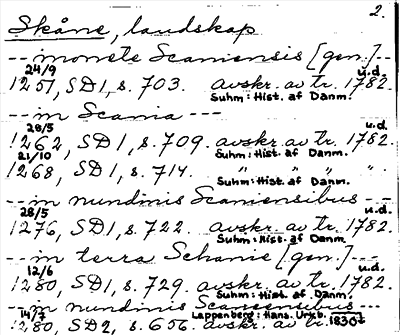 2.
Skåne, landskap
-- monete Scaniensis [gen.] --
24/9 u.d.
1251, SD1, s. 703. avskr. av tr. 1782.
Suhm: Hist. af Danm.
-- in Scania ---
28/5 u.d.
1262, SD1, s. 709. avskr. av tr. 1782.
21/10 Suhm: Hist. af Danm.
1268, SD1, s. 714. " " " "
Suhm: Hist. af Danm.
-- in nundinis Scaniensibus --
28/5 u.d.
1276, SD1, s. 722. avskr. av tr. 1782.
Suhm: Hist. af Danm.
-- in terra Schanie [gen.] ---
12/6 u.d.
1280, SD1, s. 729. avskr. av tr. 1782.
Suhm: Hist. af Danm.
-- in nundinis Scaniensibus --
14/7 Lappenberg: Hans. Urkb.
1280, SD2, s. 656. avskr. av tr. 1830